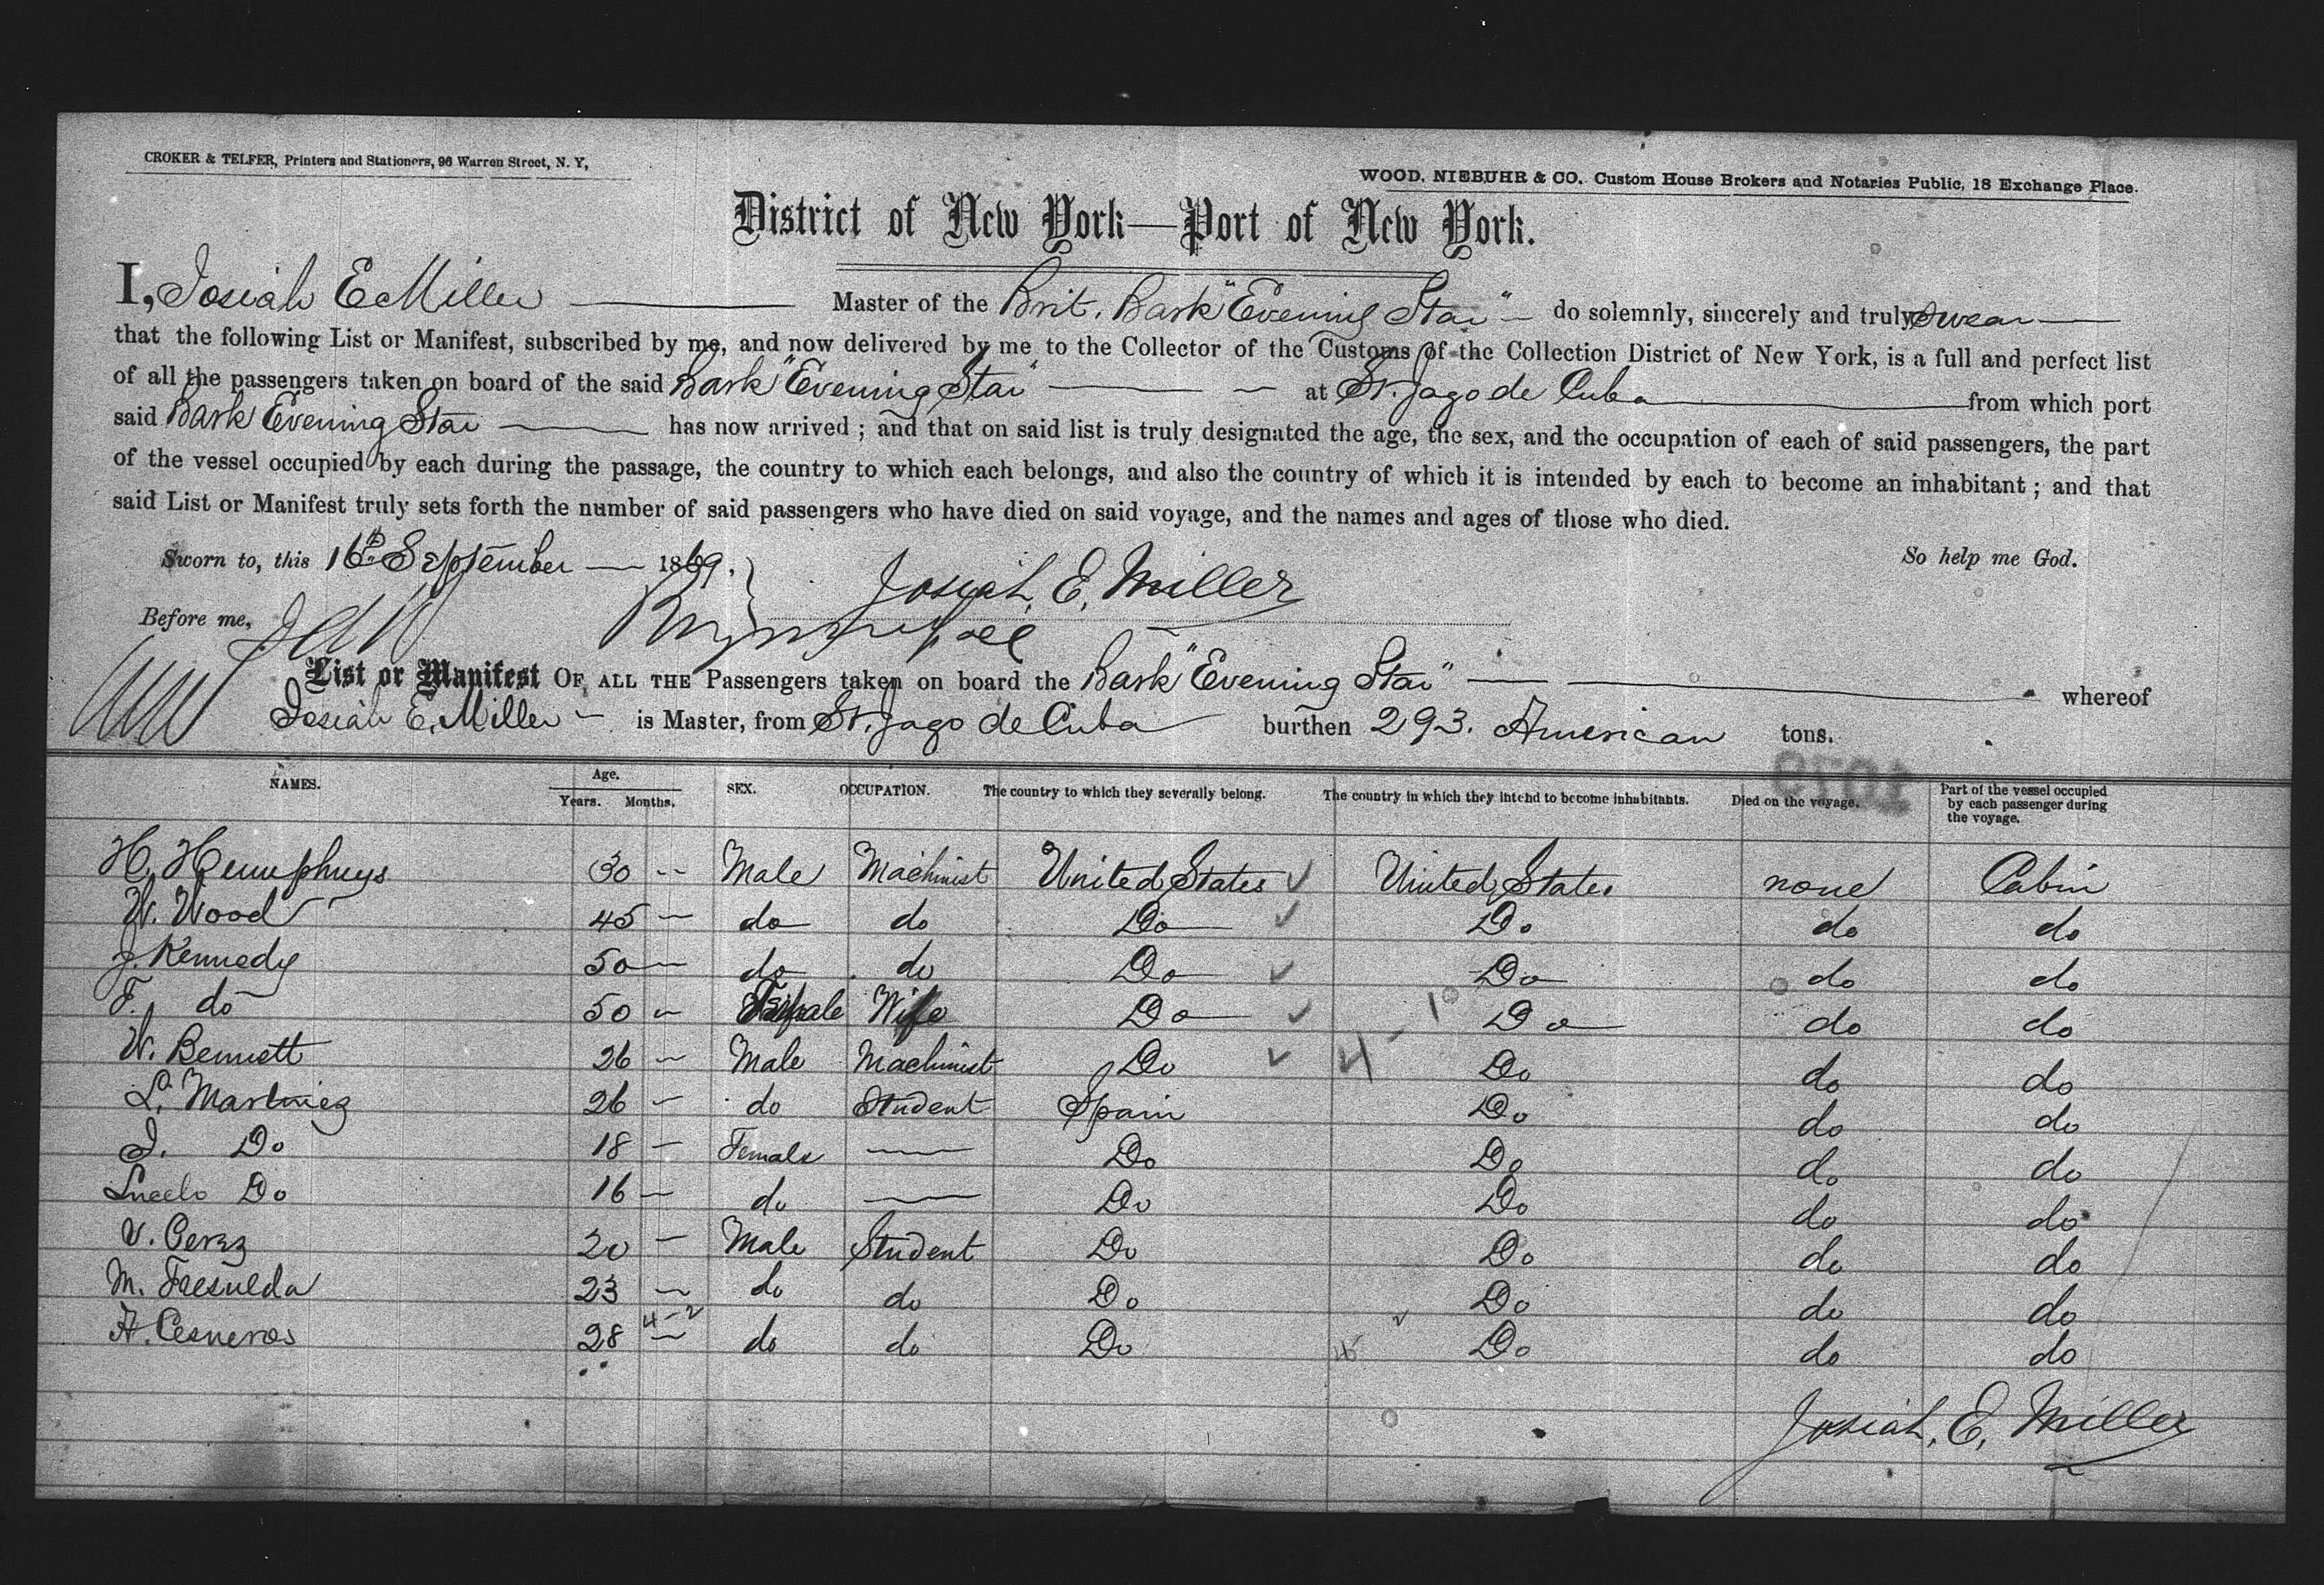 CROKER & TELFER, Printers and Stationers, 96 Warren Street, N. Y,
WOOD, NIEBUHR & CO. Custom House Brokers and Notaries Public, 18 Exchange Place.
District of New York—Port of New York.
I, Josiah E Miller — Master of the Brit. Bark "Evening Star" — do solemnly, sincerely and truly swear —
that the following List or Manifest, subscribed by me, and now delivered by me to the Collector of the Customs of the Collection District of New York, is a full and perfect list
of all the passengers taken on board of the said Bark "Evening Star" — at St. Jago de Cuba — from which port
said Bark Evening Star — has now arrived ; and that on said list is truly designated the age, the sex, and the occupation of each of said passengers, the part
of the vessel occupied by each during the passage, the country to which each belongs, and also the country of which it is intended by each to become an inhabitant ; and that
said List or Manifest truly sets forth the number of said passengers who have died on said voyage, and the names and ages of those who died.
So help me God.
Sworn to, this 16th September — 1869.
Josiah, E, Miller
Before me,
List or Manifest OF ALL THE Passengers taken on board the Bark "Evening Star" — whereof
Josiah E. Miller — is Master, from St. Jago de Cuba burthen 293. American tons.
NAMES. Age. Years. Months. SEX. OCCUPATION. The country to which they severally belong. The country in which they intend to become inhabitants. Died on the voyage. Part of the vessel occupied by each passenger during the voyage.
H. Humphreys 30 -- Male Machinist United States ✓ United States none Cabin
W. Wood 45 — do do Do ✓ Do do do
J. Kennedy 50 — do do Do ✓ Do do do
F. do 50 — Female Wife Do ✓ Do do do
W. Bennett 26 — Male Machinist Do ✓ 4 - 10 Do do do
L. Martinez 26 — do Student Spain Do do do
J. Do 18 — Female — Do Do do do
Do 16 — do — Do Do do do
V. Perez 20 — Male Student Do Do do do
M. 23 — do do Do Do do do
A. Cesneros 28 — 4-2 do do Do Do do do
Josiah, E, Miller